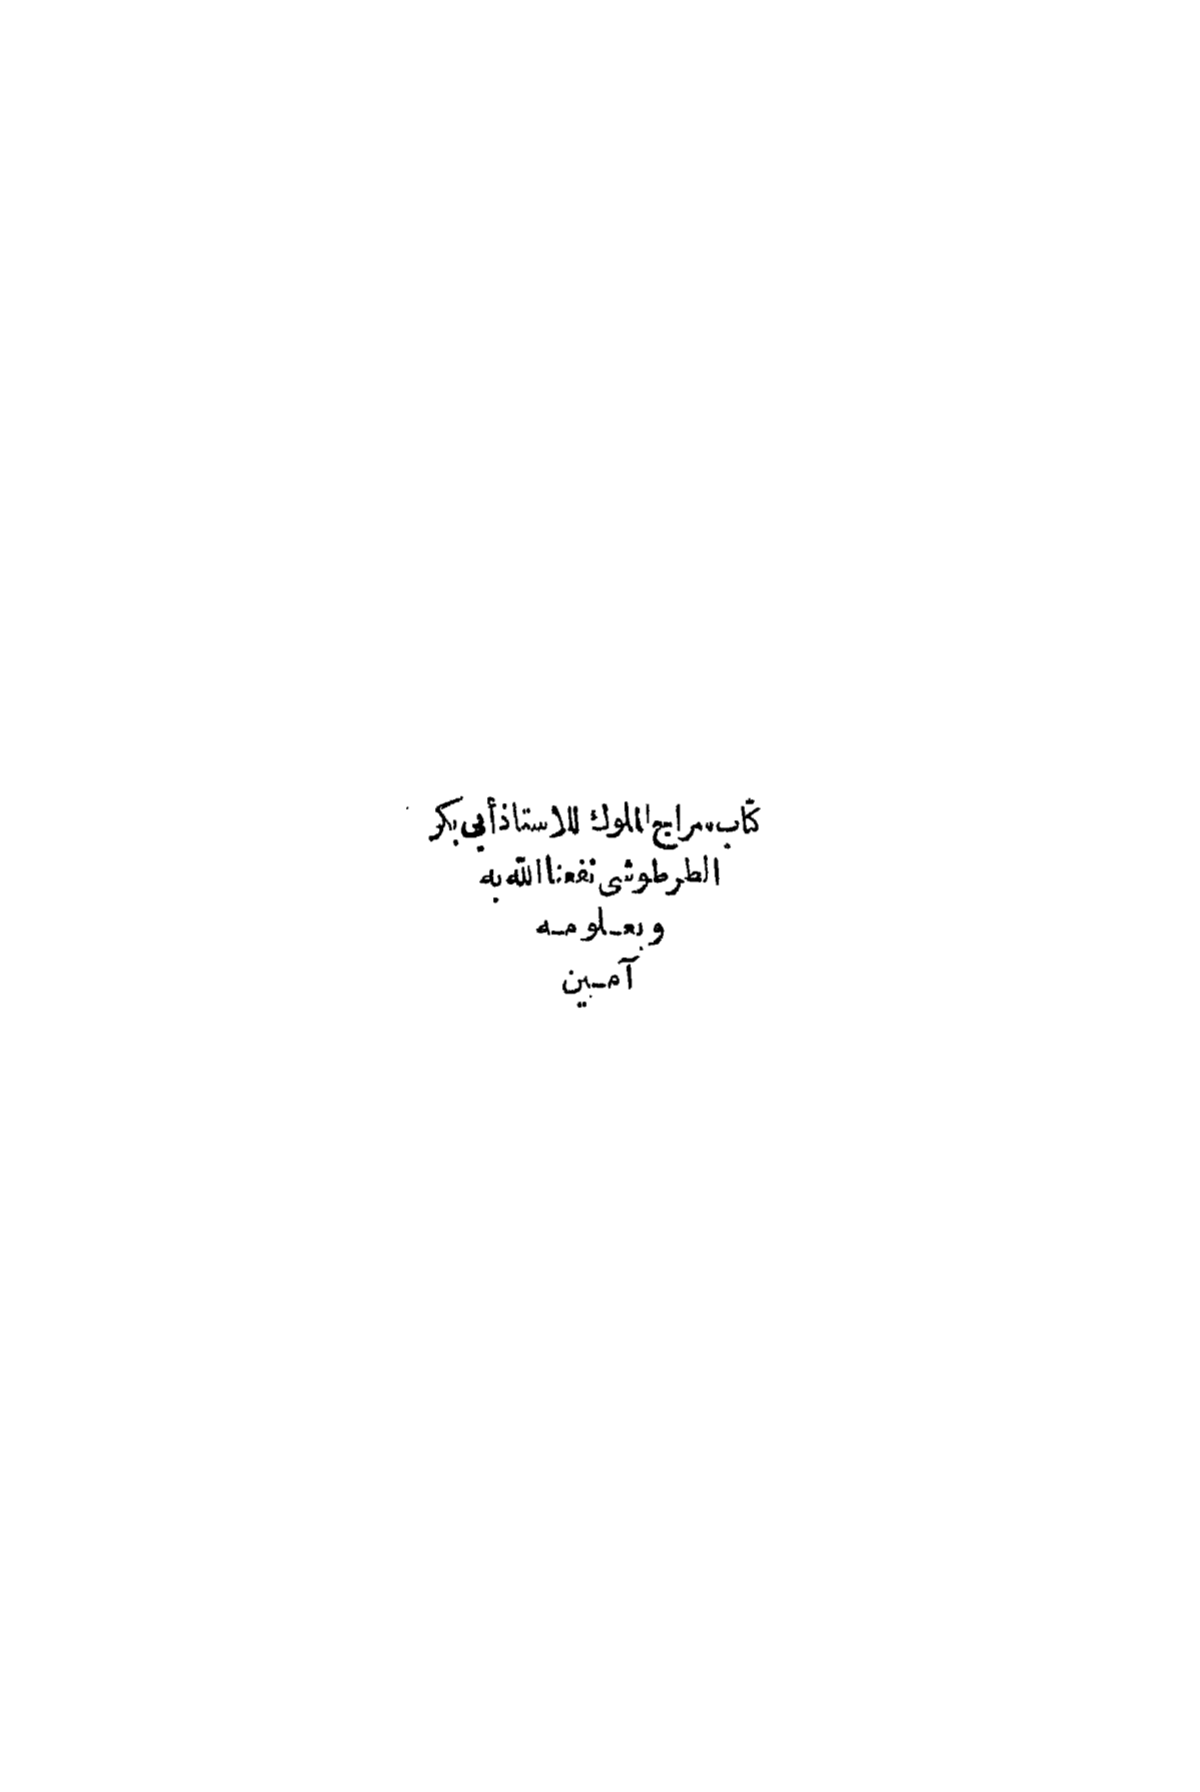 كتاب سراج الملوك للاستاذ أبي بكر
الطرطوشى نفعنا الله به
وبعـلومـه
آمـين